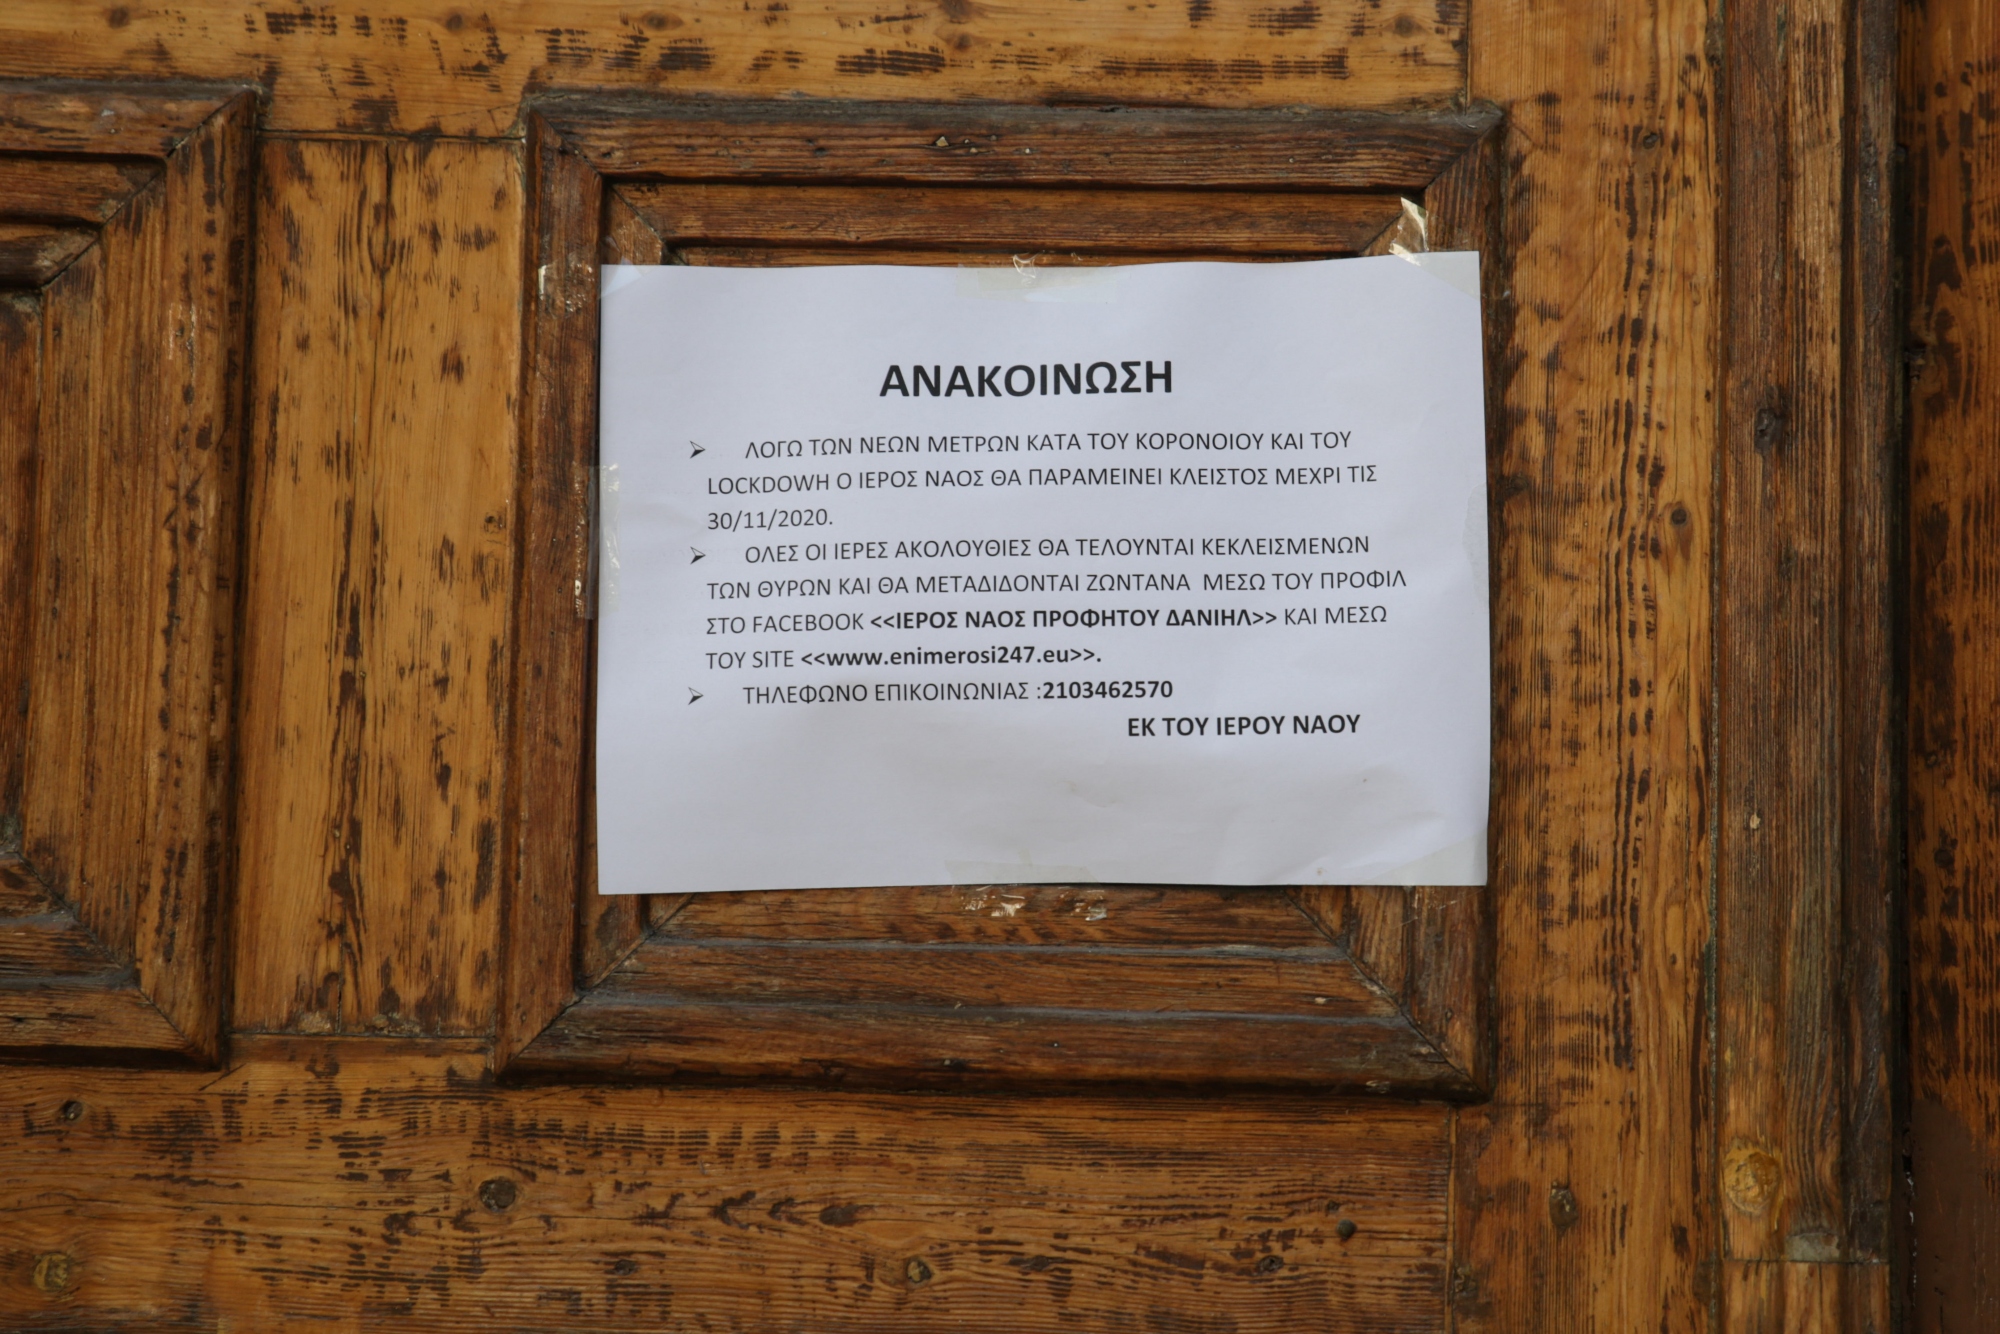 ΑΝΑΚΟΙΝΩΣΗ
➢ ΛΟΓΩ ΤΩΝ ΝΕΩΝ ΜΕΤΡΩΝ ΚΑΤΑ ΤΟΥ ΚΟΡΟΝΟΙΟΥ ΚΑΙ ΤΟΥ
LOCKDOWΗ Ο ΙΕΡΟΣ ΝΑΟΣ ΘΑ ΠΑΡΑΜΕΙΝΕΙ ΚΛΕΙΣΤΟΣ ΜΕΧΡΙ ΤΙΣ
30/11/2020.
➢ ΟΛΕΣ ΟΙ ΙΕΡΕΣ ΑΚΟΛΟΥΘΙΕΣ ΘΑ ΤΕΛΟΥΝΤΑΙ ΚΕΚΛΕΙΣΜΕΝΩΝ
ΤΩΝ ΘΥΡΩΝ ΚΑΙ ΘΑ ΜΕΤΑΔΙΔΟΝΤΑΙ ΖΩΝΤΑΝΑ ΜΕΣΩ ΤΟΥ ΠΡΟΦΙΛ
ΣΤΟ FACEBOOK <<ΙΕΡΟΣ ΝΑΟΣ ΠΡΟΦΗΤΟΥ ΔΑΝΙΗΛ>> ΚΑΙ ΜΕΣΩ
ΤΟΥ SITE <<www.enimerosi247.eu>>.
➢ ΤΗΛΕΦΩΝΟ ΕΠΙΚΟΙΝΩΝΙΑΣ :2103462570
ΕΚ ΤΟΥ ΙΕΡΟΥ ΝΑΟΥ